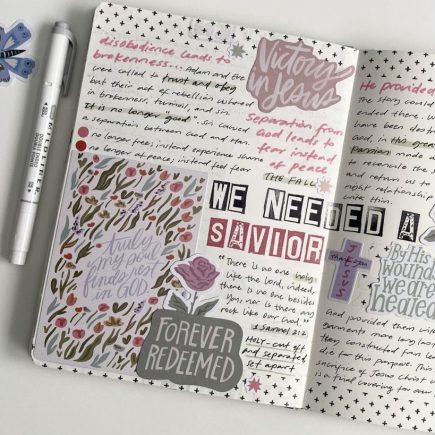 disobedience leads to
brokenness... Adam and Eve
were called to trust and obey
but their act of rebellion ushered
in brokenness, turmoil, and sin.
It is no longer good". Sin caused
a separation between God and man.
no longer free; instead experience shame
no longer peace; instead feel fear
Victory
in Jesus
Separation from
God leads to
fear instead
of peace
THE FALL
WE NEEDED A
SAVIOR
truly
my soul
finds rest
in GOD
"There is no one holy
like the Lord, indeed,
there is no one besides
You, nor is there any
rock like our God."
1 Samuel 2:2
HOLY - cut off
and separated
set apart
FOREVER
REDEEMED
He provided
The story could
ended there. W
have been dest
God, in His great
to reconcile the
and return us to
right relationship
with Him.
thank you
JESUS
By His
wounds
we are
healed
God provided them with
garments more long
they constructed from le
die for this purpose. This
sacrifice of Jesus Christ
is a final covering for our